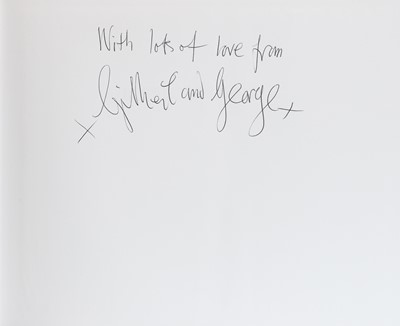 With lots of love from
x Gilbert and George x